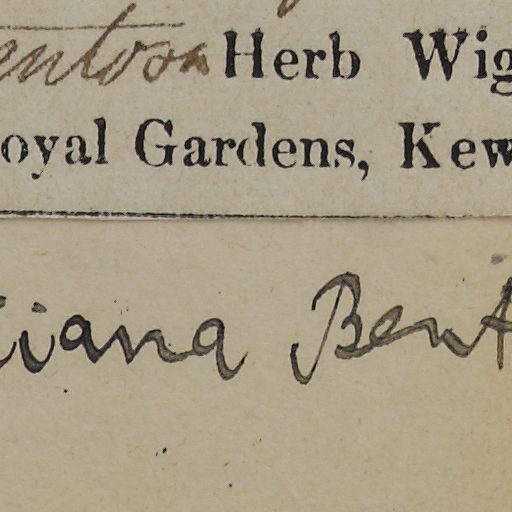 entosa Herb Wig
oyal Gardens, Kew
iana Bent